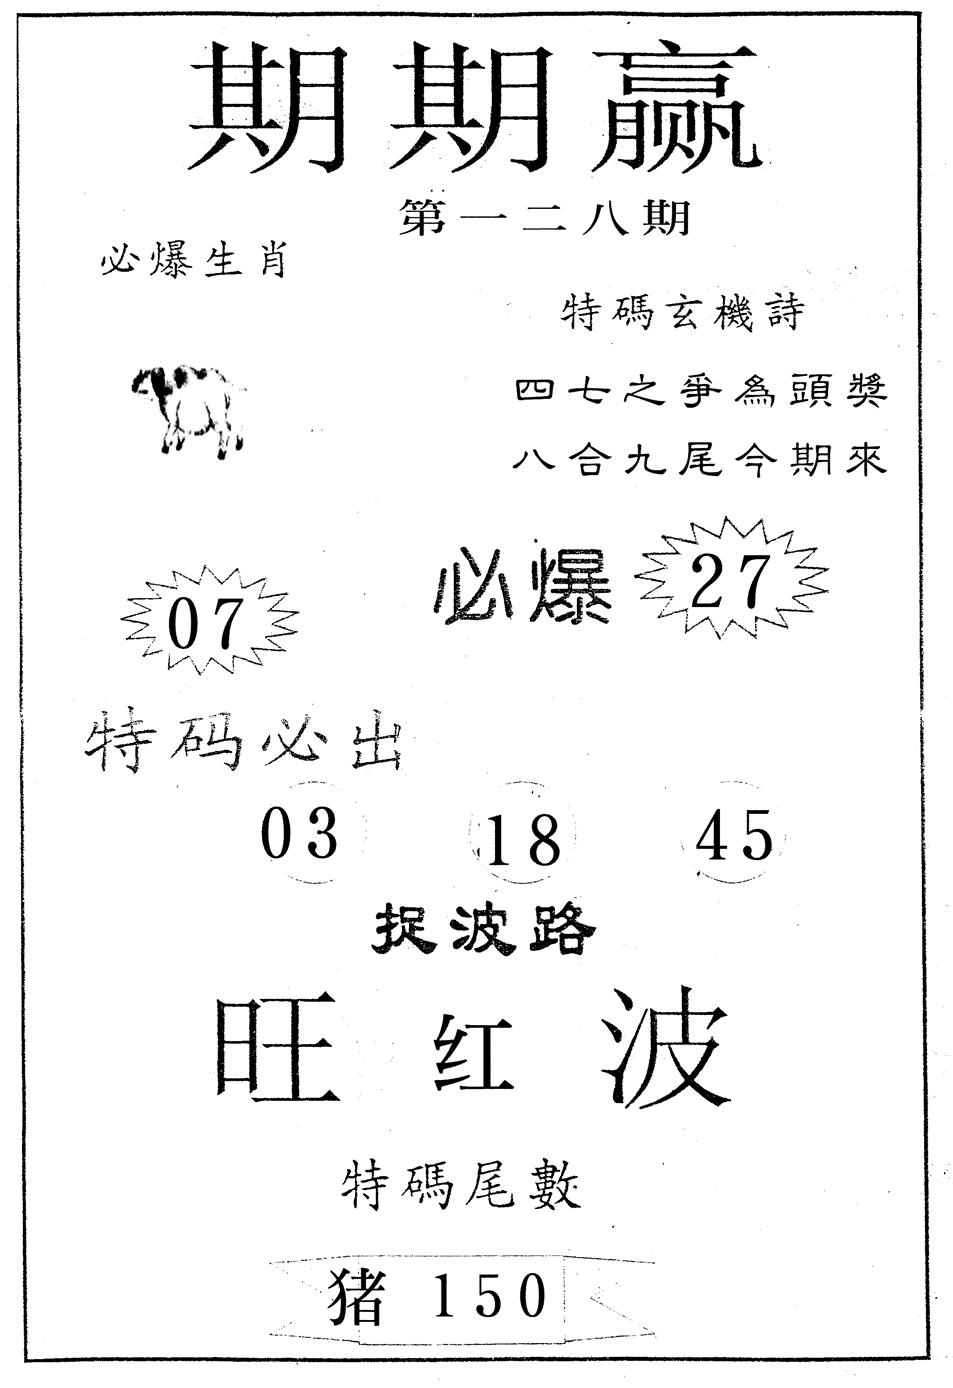 期期赢
第一二八期
必爆生肖
特碼玄機詩
四七之爭為頭獎
八合九尾今期來
必爆 27
07
特码必出
03 18 45
捉波路
旺红波
特碼尾數
猪 150